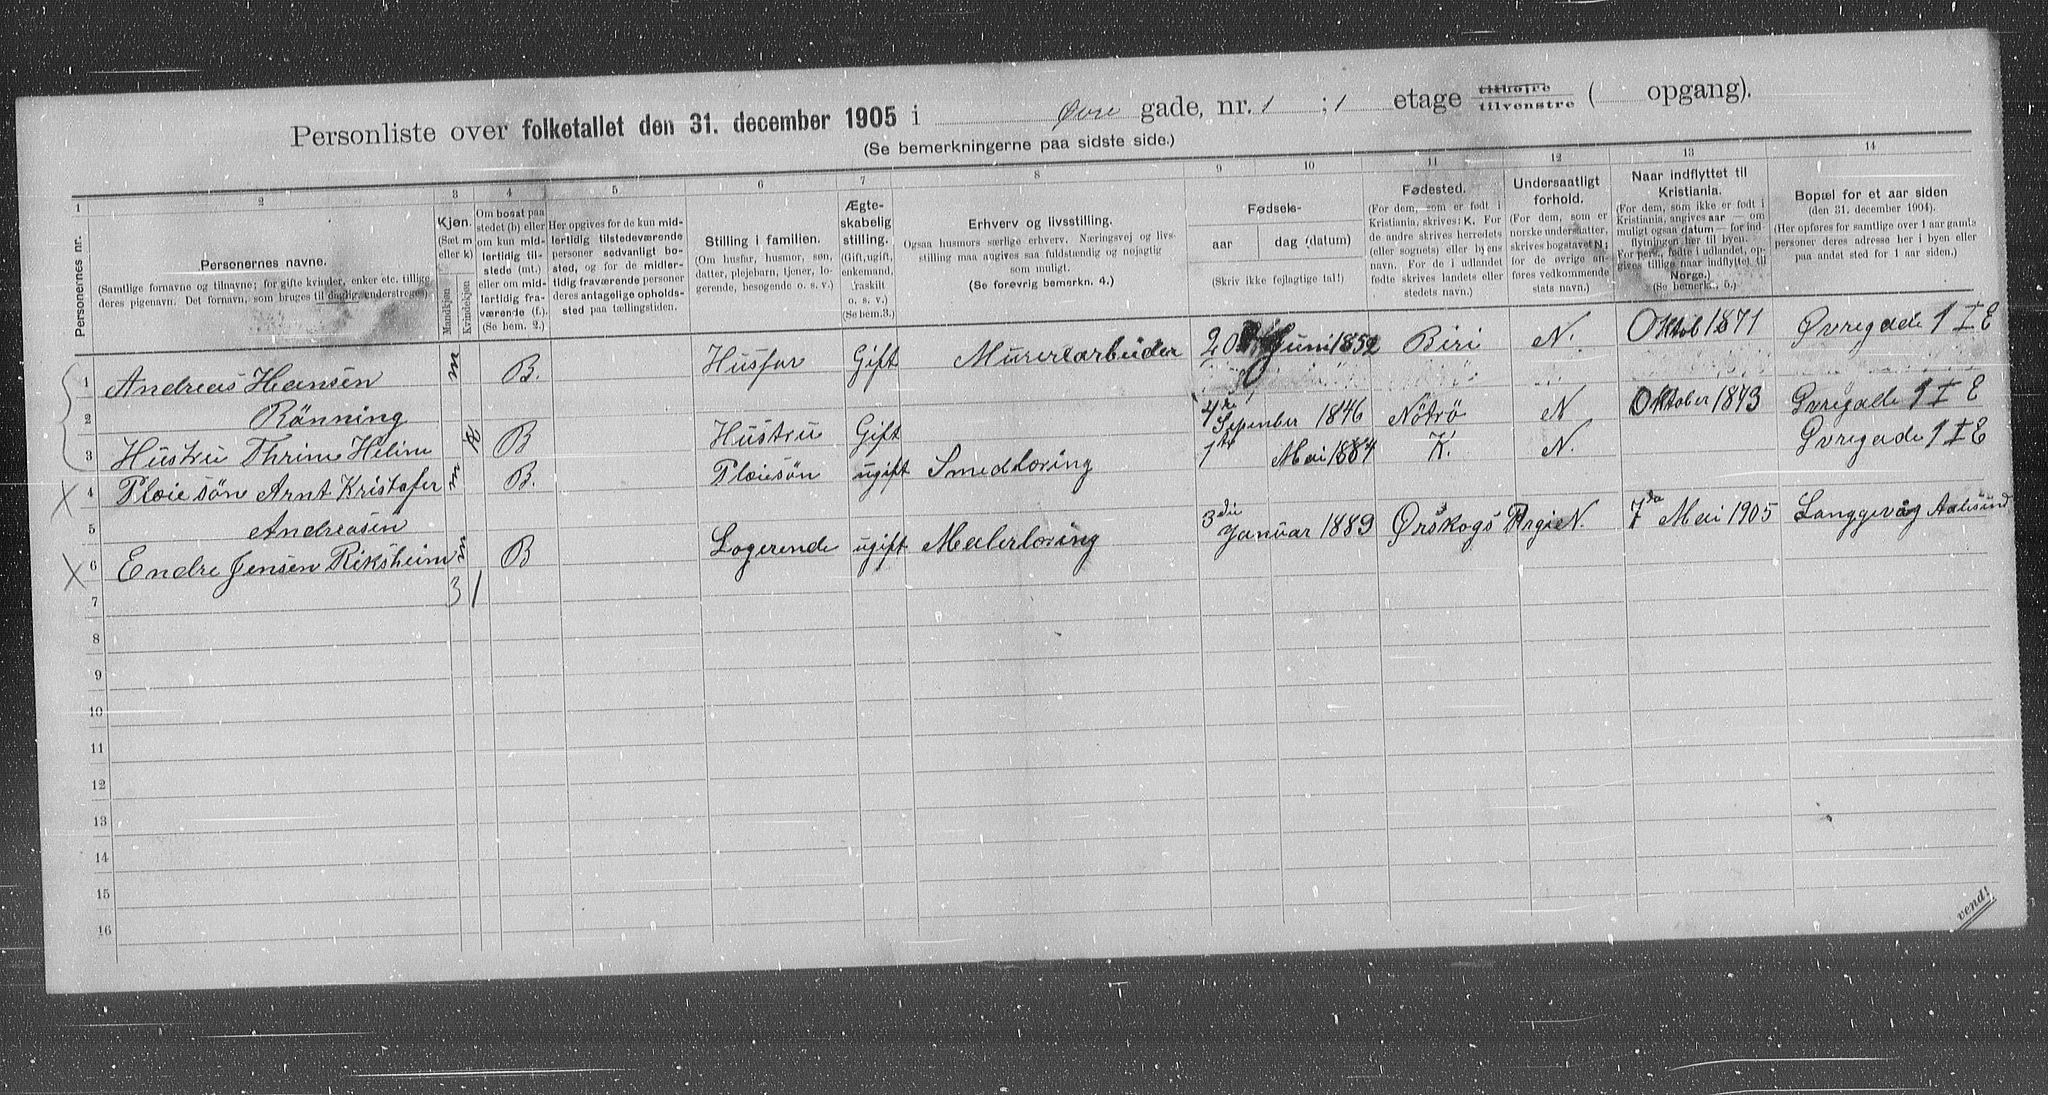 Personliste over folketallet den 31. december 1905 i Øvre gade, nr. 1 ; 1 etage tilhøjre tilvenstre ( opgang).
(Se bemerkningerne paa sidste side.)
1 2 3 4 5 6 7 8 9 10 11 12 13 14
Personernes nr.
Personernes navne.
(Samtlige fornavne og tilnavne; for gifte kvinder, enker etc. tillige
deres pigenavn. Det fornavn, som bruges til daglig, understreges)
Kjøn.
(Sæt m
eller k)
Mandkjøn
Kvindekjøn
Om bosat paa
stedet (b) eller
om kun mid-
lertidig til-
stede (mt.)
eller om mid-
lertidig fra-
værende (f.).
(Se bem. 2.)
Her opgives for de kun mid-
lertidig tilstedeværende
personer sedvanligt bo-
sted, og for de midler-
tidig fraværende personer
deres antagelige opholds-
sted paa tællingstiden.
Stilling i familien.
(Om husfar, husmor, søn,
datter, plejebarn, tjener, lo-
gerende, besøgende o. s. v.)
Ægte-
skabelig
stilling.
(Gift, ugift,
enkemand,
fraskilt
o. s. v.)
(Se bem.3.)
Erhverv og livsstilling.
Ogsaa husmors særlige erhverv. Næringsvej og livs-
stilling maa angives saa fuldstændig og nøjagtig
som muligt.
(Se forøvrig bemerkn. 4.)
Fødsels-
aar dag (datum)
(Skriv ikke fejlagtige tal!)
Fødested.
(For dem, som er født i
Kristiania, skrives: K. For
de andre skrives herredets
(eller sognets) eller byens
navn. For de i udlandet
fødte skrives landets eller
stedets navn.)
Undersaatligt
forhold.
(For dem, som er
norske undersaatter,
skrives bogstavet N;
for de øvrige an-
føres vedkommende
stats navn.)
Naar indflyttet til
Kristiania.
(For dem, som ikke er født i
Kristiania, angives aar — om
muligt ogsaa datum — for ind-
flytningen her til byen. —
For pers., fødte i udlandet, op-
gives tillige naar indflyttet til
Norge.)
(Se bemerk. 5.)
Bopæl for et aar siden
(den 31. december 1904).
(Her opføres for samtlige over 1 aar gamle
personer deres adresse her i byen eller
paa andet sted for 1 aar siden.)
1 Andreas Hansen m B. Husfar Gift Murerarbeider 20 Juni 1852 Biri N. Oktob 1871 Øvregade 1 I E
2 Rönning
3 Hustru Thrine Heline k B Hustru Gift 4 September 1846 Nötrö N Oktober 1873 Øvregade 1 I E
4 Pleiesön Arnt Kristofer m B. Pleiesön ugift Smedlæring 1 Mai 1884 K. N. Øvregade 1 I E
5 Andreasen
6 Endre Jensen Riksheim m B Logerende ugift Malerlæring 3die Januar 1889 Ørskogs Prgi N. 7da Mai 1905 Langgevåg Aalesund
7 3 1
8
9
10
11
12
13
14
15
16
vend!